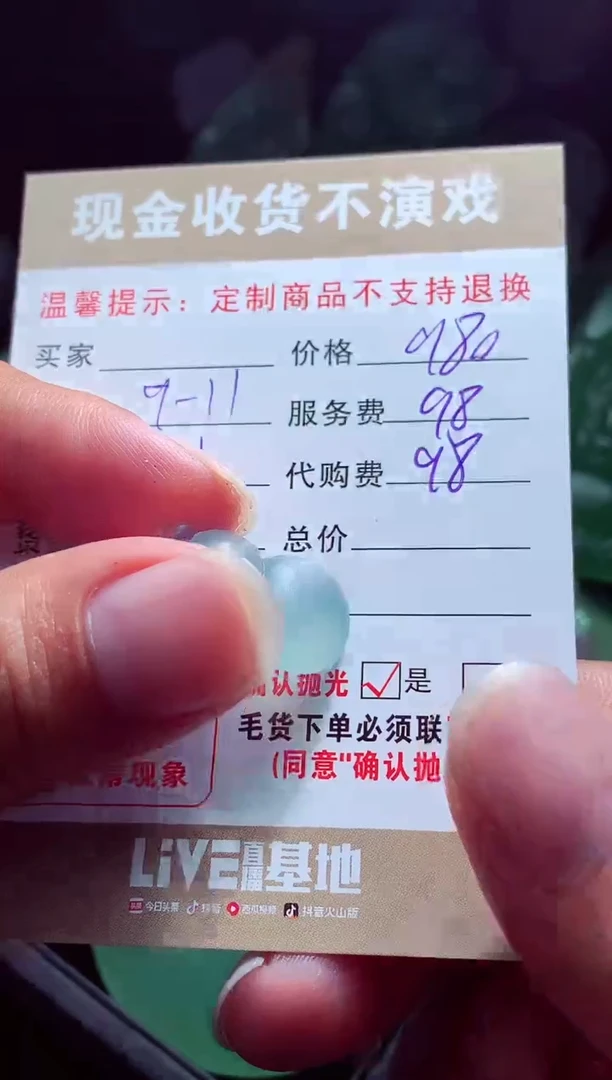 现金收货不演戏
温馨提示：定制商品不支持退换
买家 价格 980
9-11 服务费 98
代购费 98
总价
确认抛光 是
毛货下单必须联
现象 (同意"确认抛
LiVE直播基地
今日头条 抖音 西瓜视频 抖音火山版